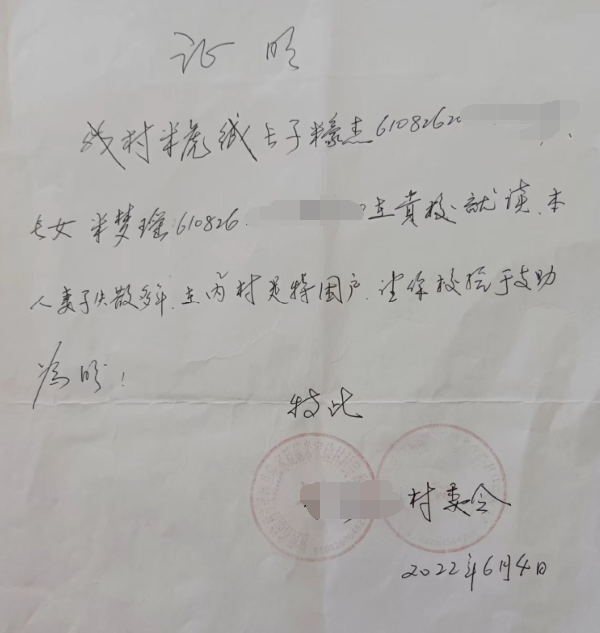 证明
我村米虎绒长子米豪杰6108262
长女米梦瑶610826.在贵校就读.本
人妻子失散多年.在内村是特困户.望你校给于支助
为盼！
特此
村委会
2022年6月4日